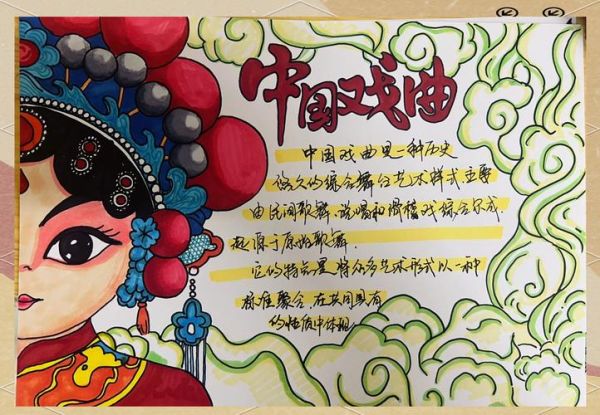 中国戏曲
中国戏曲是一种历史
悠久的综合舞台艺术样式.主要
由民间歌舞、说唱和滑稽戏综合形成.
起源于原始歌舞.
它的特点是将众多艺术形式以一种
标准聚合,在共同具有
的性质中体现.